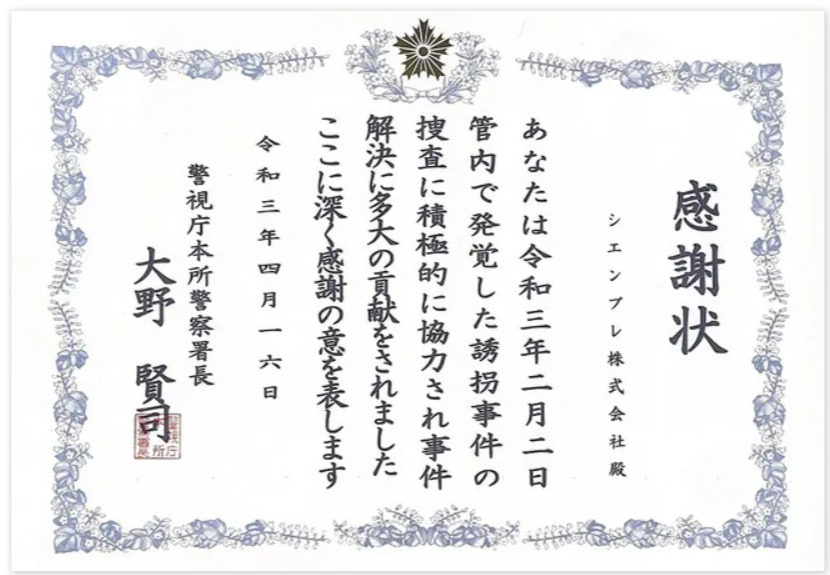 感謝状
シエンプレ株式会社殿
あなたは令和三年二月二日
管内で発覚した誘拐事件の
捜査に積極的に協力され事件
解決に多大の貢献をされました
ここに深く感謝の意を表します
令和三年四月一六日
警視庁本所警察署長
大野 賢司